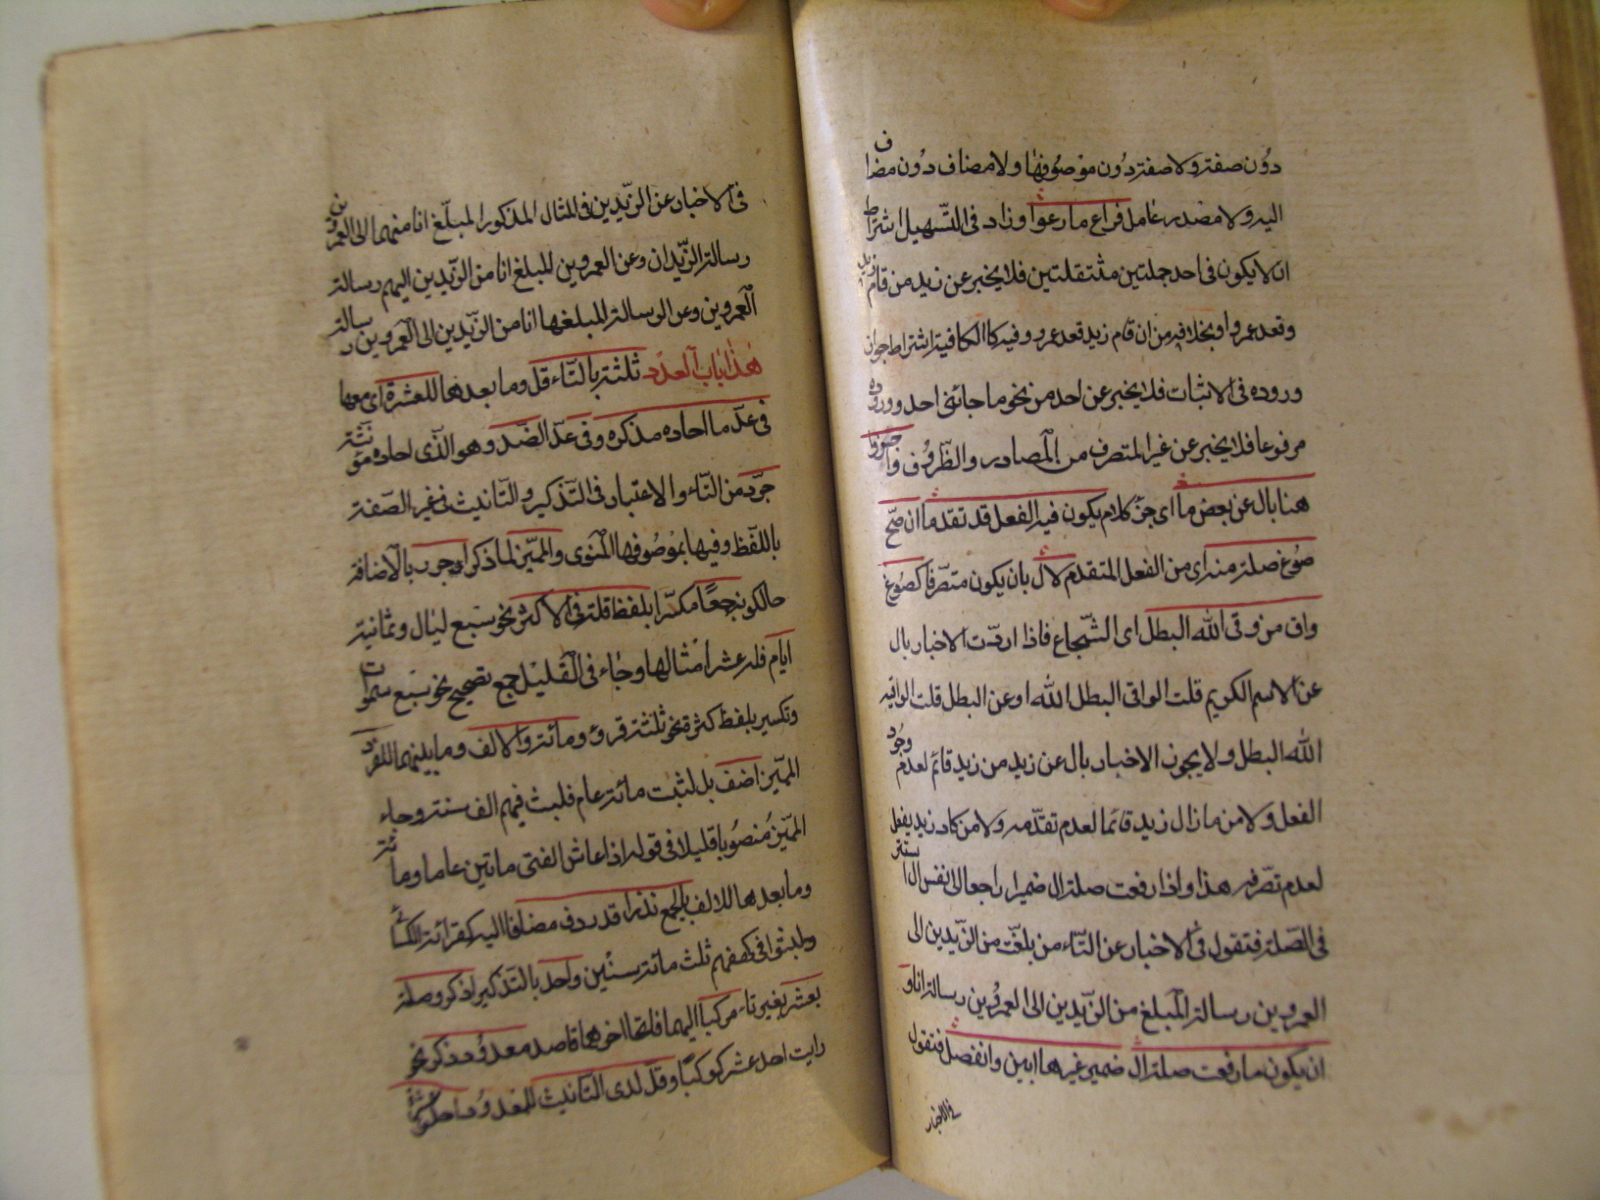 دون صفته ولا صفته دون موصوفها ولا مضاف دون مضاف
اليه ولا مصدر عامل فراع ما رعوا وزاد فى التسهيل اشتراط
ان لا يكون فى احد جملتين مستقلتين فلا يخبر عن زيد من قام زيد
وقعد عمرو او بخلافه من ان قام زيد قعد عمرو وفيه كالكافية اشتراط جواز
وروده فى الاثبات فلا يخبر عن احد من نحو ما جائنى احد ووروده
مرفوعا فلا يخبر عن غير المتصرف من المصادر والظروف واخبروا
هنا بال عن بعض ما اى جزء كلام يكون فيه الفعل قد تقدما ان صح
صوغ صلة منه اى من الفعل المتقدم لال بان يكون متصرفا كصوغ
واق من وقى الله البطل اى الشجاع فاذا اردت الاخبار بال
عن الاسم الكريم قلت الواقى البطل الله او عن البطل قلت الواقيه
الله البطل ولا يجوز الاخبار بال عن زيد من زيد قائم لعدم وجود
الفعل ولا من مازال زيد قائما لعدم تقدمه ولا من كاد زيد يفعل
لعدم تصرفه هذا واذا رفعت صلة ال ضميرا راجعا الى نفس ال استتر
فى الصلة فتقول فى الاخبار عن التاء من بلغت من الزيدين الى
العمروين رسالة المبلغ من الزيدين الى العمروين رسالة انا و
ان يكون ما رفعت صلة ال ضمير غيرها ابين وانفصل فتقول
فى الاخبار
فى الاخبار عن الزيدين فى المثال المذكور المبلغ انا منهما الى العمروين
رسالة الزيدان وعن العمروين المبلغ انا من الزيدين اليهم رسالة
العمروين وعن الرسالة المبلغها انا من الزيدين الى العمروين رسالة
هذا باب العدد ثلثة بالتاء قل وما بعدها للعشرة اى معها
فى عد ما احاده مذكره وفى عد الضد وهو الذى احاده مؤنثة
جرد من التاء والاعتبار فى التذكير والتانيث فى غير الصفة
باللفظ وفيها بموصوفها المنوى والمميز لما ذكر اجرر بالاضافة
حالكونه جمعا مكسرا بلفظ قلة فى الاكثر نحو سبع ليال وثمانية
ايام فله عشر امثالها وجاء فى القليل جمع تصحيح نحو سبع سموات
وتكسير بلفظ كثرة نحو ثلثة قروء ومائة والالف وما بينهما للفرد
المميز اضف بل لبثت مائة عام فلبث فيهم الف سنة وجاء
المميز منصوبا قليلا فى قوله اذا عاش الفتى مائتين عاما ومائة
وما بعدها للالف بالجمع نذرا قد ردف مضافا اليه كقرائة الكسائى
ولبثوا فى كهفهم ثلث مائة سنين واحد بالتذكير اذكر وصلنه
بعشر بغير تاء مركبا اليهما فاتحا اخرهما قاصد معدود ذكر نحو
رايت احد عشر كوكبا وقل لدى التانيث للمعدود احدى عشرة